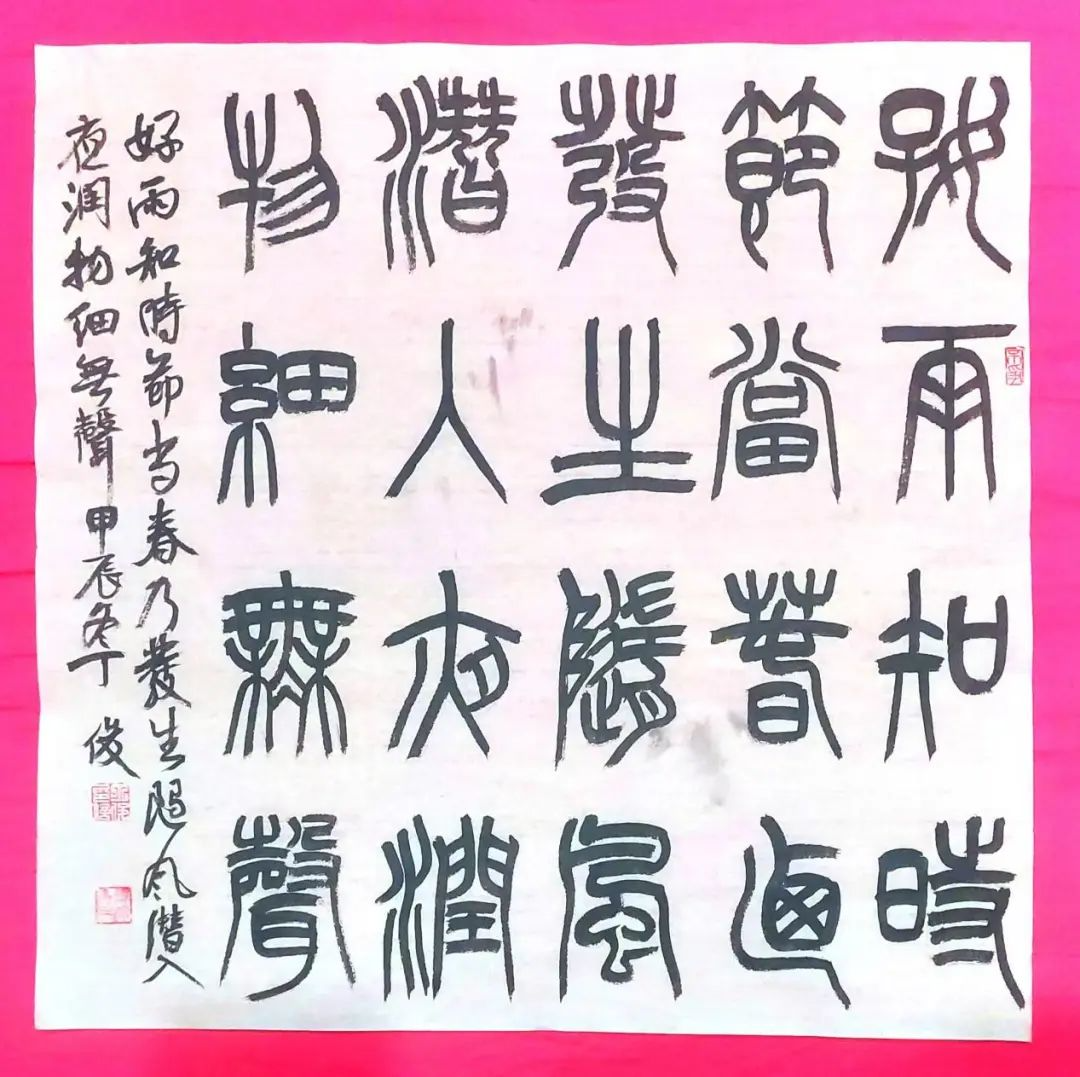 好雨知時
節當春迺
發生隨風
潛入夜潤
物細無聲
好雨知時節当春乃發生随风潛入
夜潤物细無聲甲辰冬丁俊